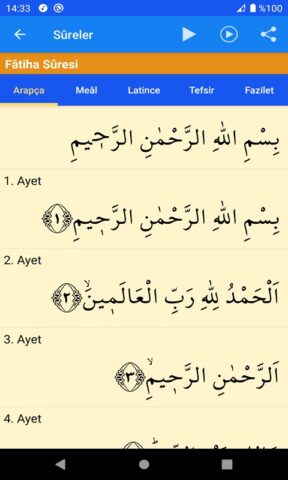 14:33
%100
Sûreler
Fâtiha Sûresi
Arapça Meâl Latince Tefsir Fazilet
بِسْمِ اللهِ الرَّحْمٰنِ الرَّحٖيمِ
1. Ayet
بِسْمِ اللهِ الرَّحْمٰنِ الرَّحٖيمِ ﴿١﴾
2. Ayet
اَلْحَمْدُ لِلهِ رَبِّ الْعَالَمٖينَۙ ﴿٢﴾
3. Ayet
اَلرَّحْمٰنِ الرَّحٖيمِۙ ﴿٣﴾
4. Ayet